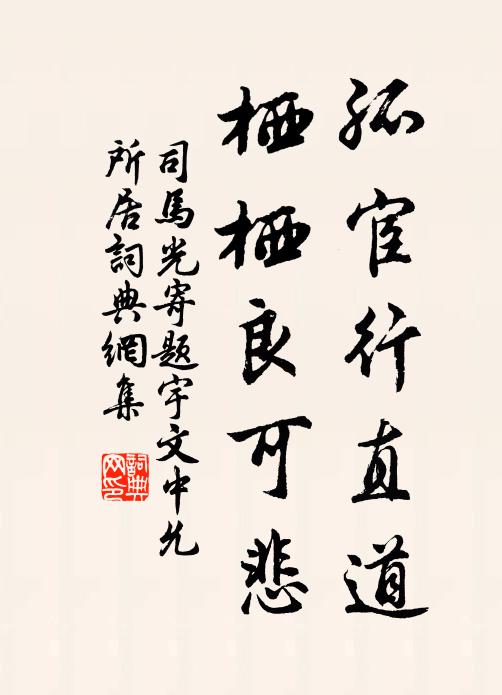 孤宦行直道
栖栖良可悲
司馬光寄題宇文中允
所居詞典網集
詞典網印